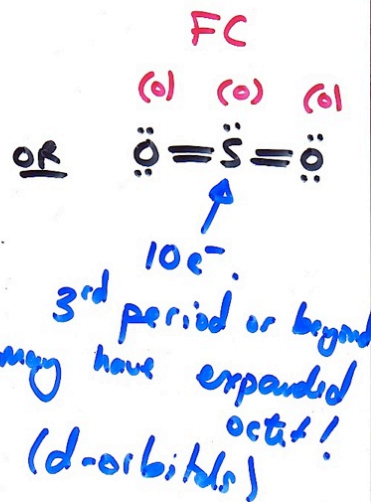 FC
(0) (0) (0)
OR Ö=S̈=Ö
10e⁻.
3rd period or beyond
may have expanded
octet!
(d-orbitals)